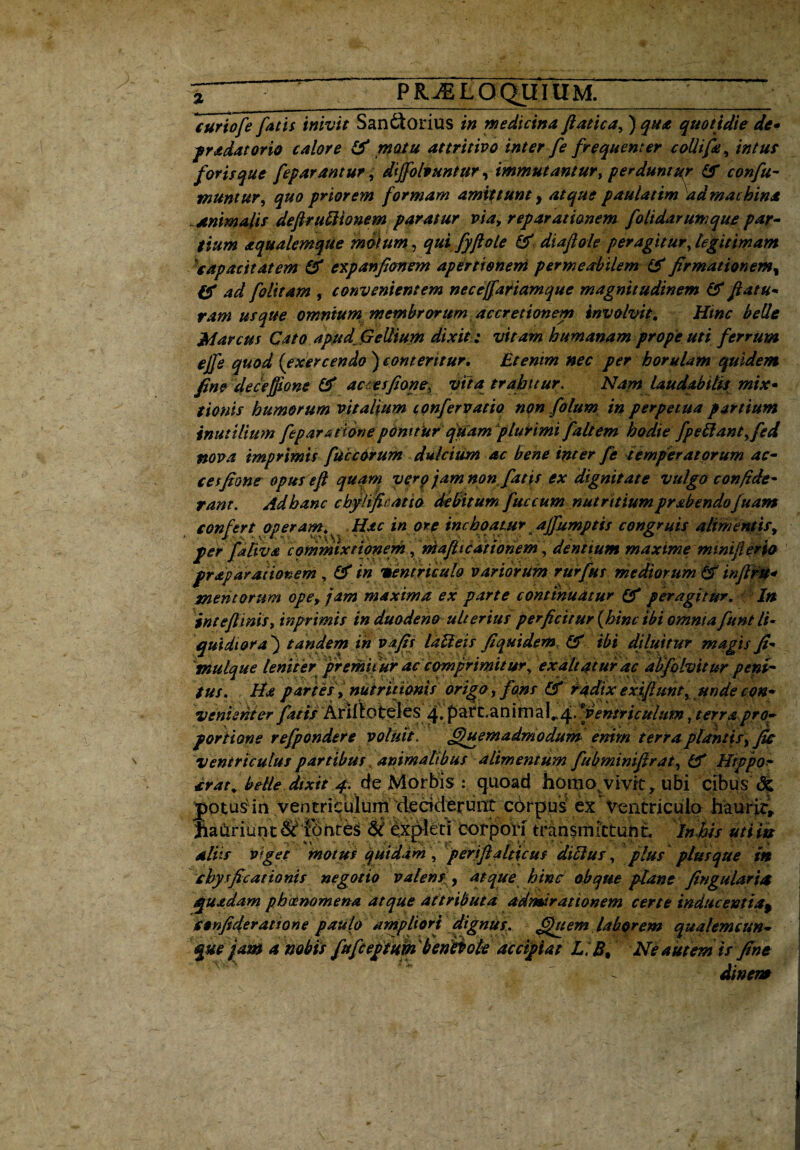 2 PRÆLOQUIUM.
curioſe ſatis inivit Sanctorius in medicina ſtatica, ) quæ quotidie de-
prædatorio calore & motu attritivo inter ſe frequenter colliſæ, intus
foriſque ſeparantur, diſſolvuntur, immutantur, perduntur & conſu-
muntur, quo priorem formam amittunt, atque paulatim ad machinæ
animalis deſtructionem paratur via, reparationem ſolidarumque par-
tium æqualemque motum, qui ſyſtole & diaſtole peragitur, legitimam
capacitatem & expanſionem apertionem permeabilem & firmationem,
& ad ſolitam , convenientem neceſſariamque magnitudinem & ſtatu-
ram usque omnium membrorum accretionem involvit. Hinc belle
Marcus Cato apud Gellium dixit: vitam humanam prope uti ferrum
eſſe quod (exercendo ) conteritur. Etenim nec per horulam quidem
ſine deceſſione & accesſione, vita trahitur. Nam laudabilis mix-
tionis humorum vitalium conſervatio non ſolum in perpetua partium
inutilium ſeparatione ponitur quam plurimi ſaltem hodie ſpectant, ſed
nova imprimis ſuccorum dulcium ac bene inter ſe temperatorum ac-
cesſione opus eſt quam vero jam non ſatis ex dignitate vulgo conſide-
rant. Ad hanc chylificatio debitum ſuccum nutritium præbendo ſuam
confert operam. Hæc in ore inchoatur aſſumptis congruis alimentis,
per ſalivæ commixtionem, maſticationem, dentium maxime miniſterio
præparationem , & in ventriculo variorum rurſus mediorum & inſtru-
mentorum ope, jam maxima ex parte continuatur & peragitur. In
inteſtinis, inprimis in duodeno ulterius perficitur (hinc ibi omnia ſunt li-
quidiora) tandem in vaſis lacteis ſiquidem & ibi diluitur magis ſi-
mulque leniter premitur ac comprimitur, exaltatur ac abſolvitur peni-
tus. Hæ partes, nutritionis origo, fons & radix exiſtunt, unde con-
venienter ſatis Ariſtoteles 4. part. animal. 4. ventriculum, terræ pro-
portione reſpondere voluit. Quemadmodum enim terra plantis, ſic
ventriculus partibus animalibus alimentum ſubminiſtrat, & Hippo-
crat. belle dixit 4. de Morbis : quoad homo vivit, ubi cibus &
potus in ventriculum deciderunt corpus ex ventriculo haurit,
hauriunt & fontes & expleti corpori transmittunt. In his uti in
aliis viget motus quidam, periſtalticus dictus, plus plusque in
chyſificationis negotio valens, atque hinc obque plane ſingularia
quædam phœnomena atque attributa admirationem certe inducentia,
conſideratione paulo ampliori dignus. Quem laborem qualemcun-
que jam a nobis ſuſceptum benevole accipiat L. B. Ne autem is ſine
dinem